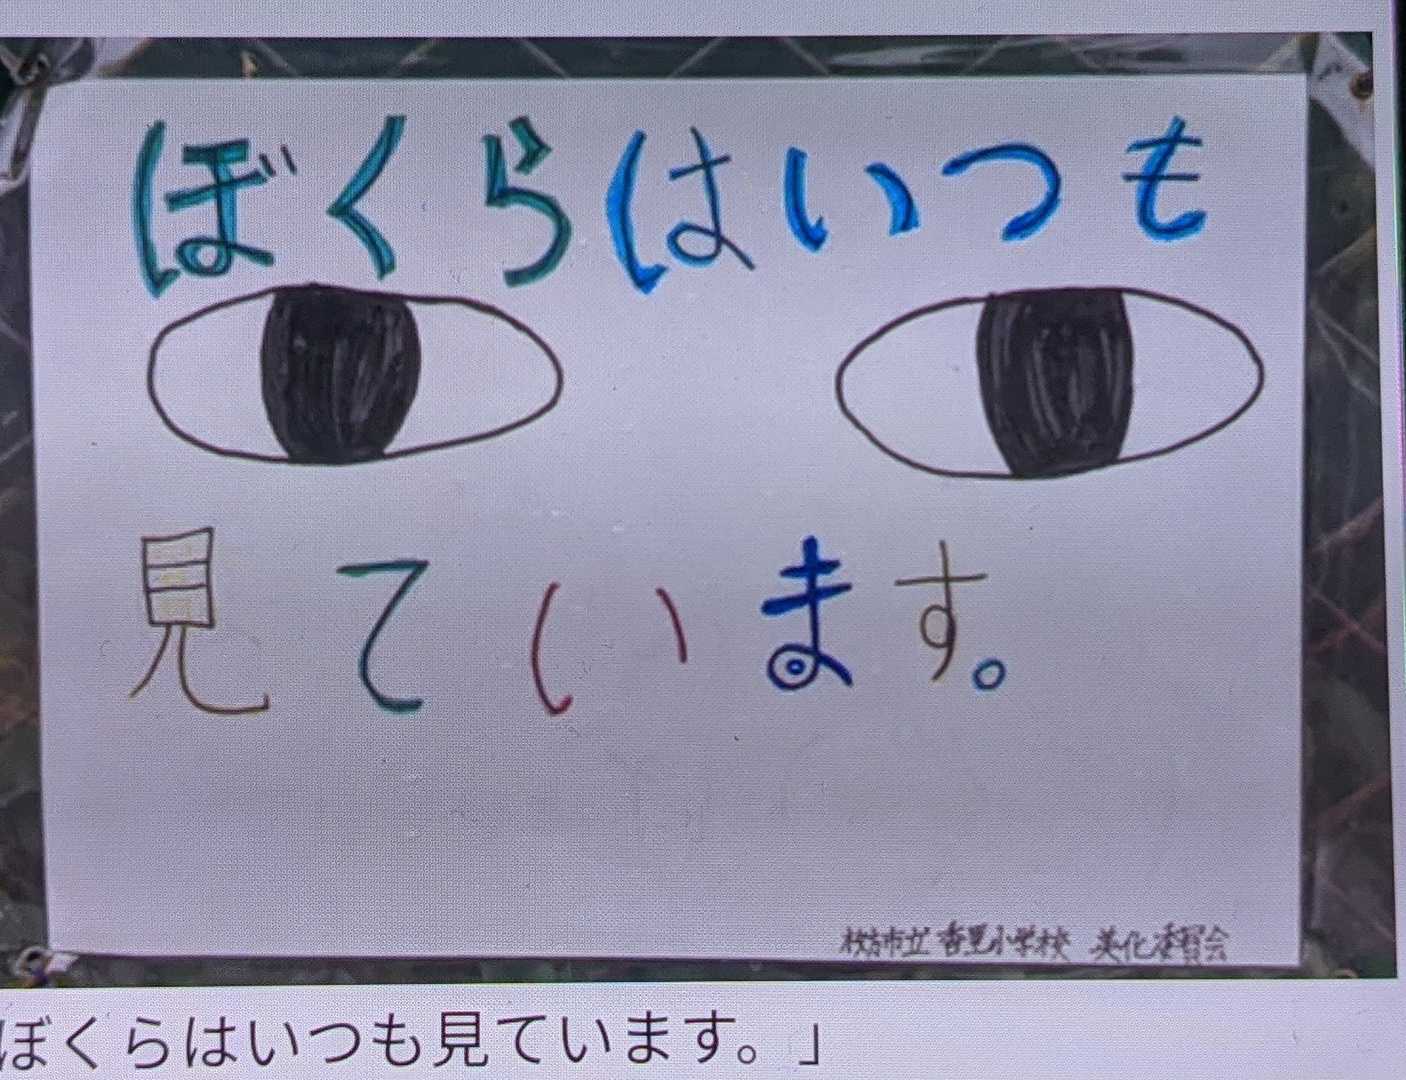 ぼくらはいつも
見ています。
枚方市立香里小学校 美化委員会
ぼくらはいつも見ています。」